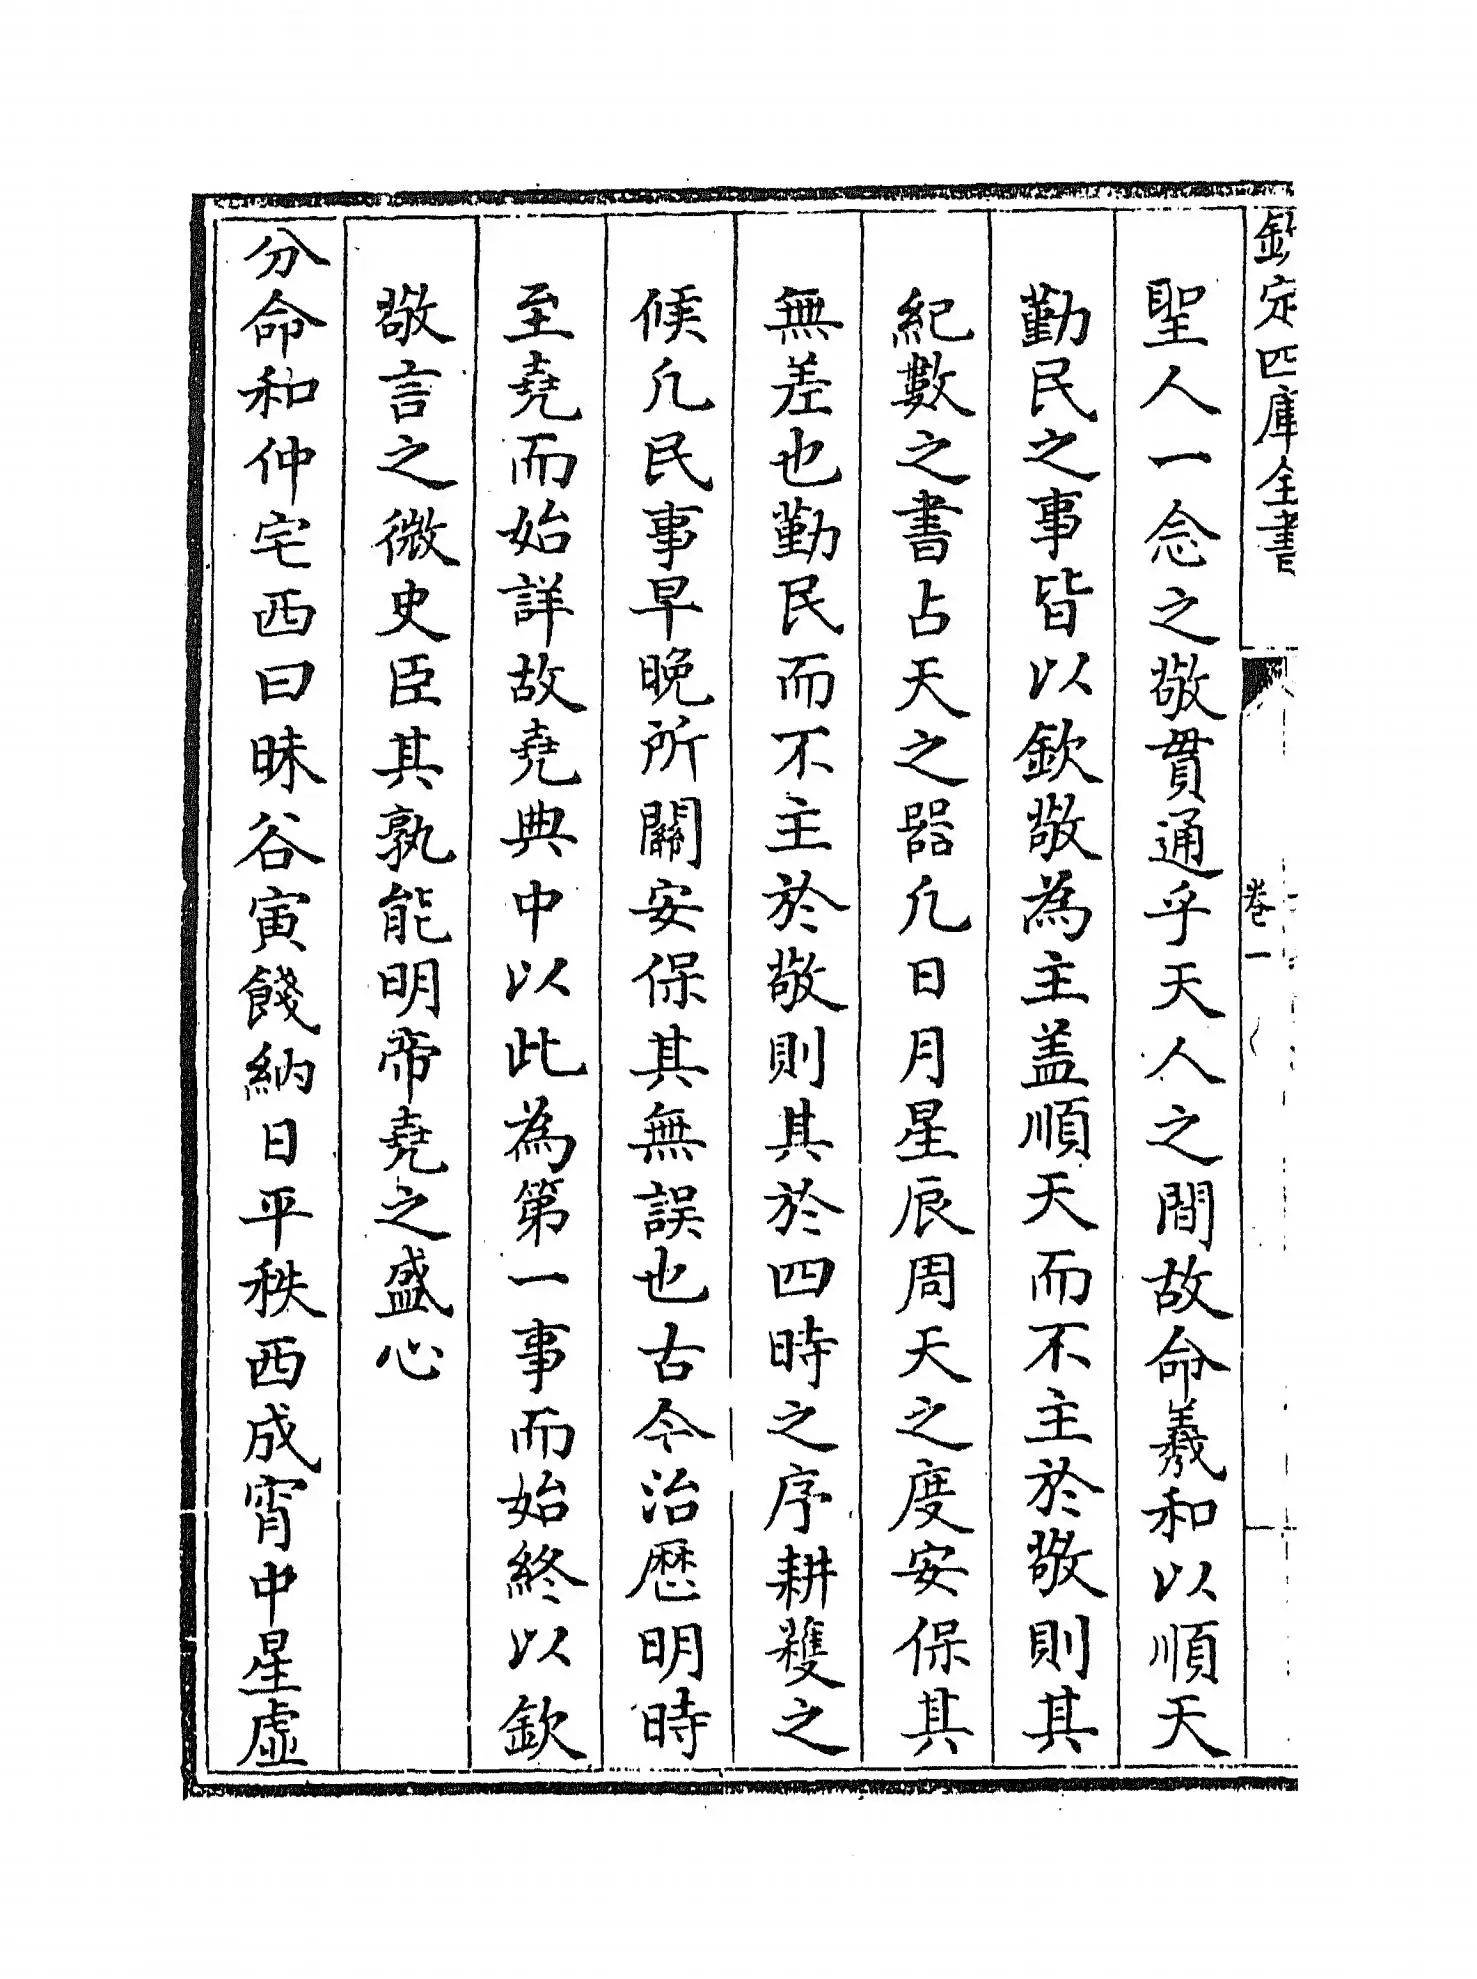 欽定四庫全書
卷一
聖人一念之敬貫通乎天人之間故命羲和以順天
勤民之事皆以欽敬為主盖順天而不主於敬則其
紀數之書占天之器凢日月星辰周天之度安保其
無差也勤民而不主於敬則其於四時之序耕穫之
候凢民事早晚所關安保其無誤也古今治歴明時
至堯而始詳故堯典中以此為第一事而始終以欽
敬言之微史臣其孰能明帝堯之盛心
分命和仲宅西曰昧谷寅餞納日平秩西成宵中星虚